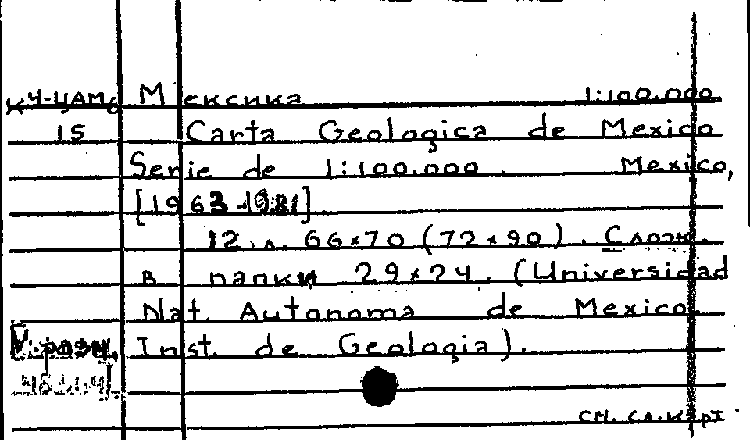 К4-ЦАм6 Мексика 1:100.000
15 Carta Geologica de Mexico
Serie de 1:100.000. Mexico,
[1963-1981]
12 л. 66×70 (72×90). Слож.
в папки 29×24. (Universidad
Nat. Autonoma de Mexico.
Inst. de Geologia).
см. сл. карт